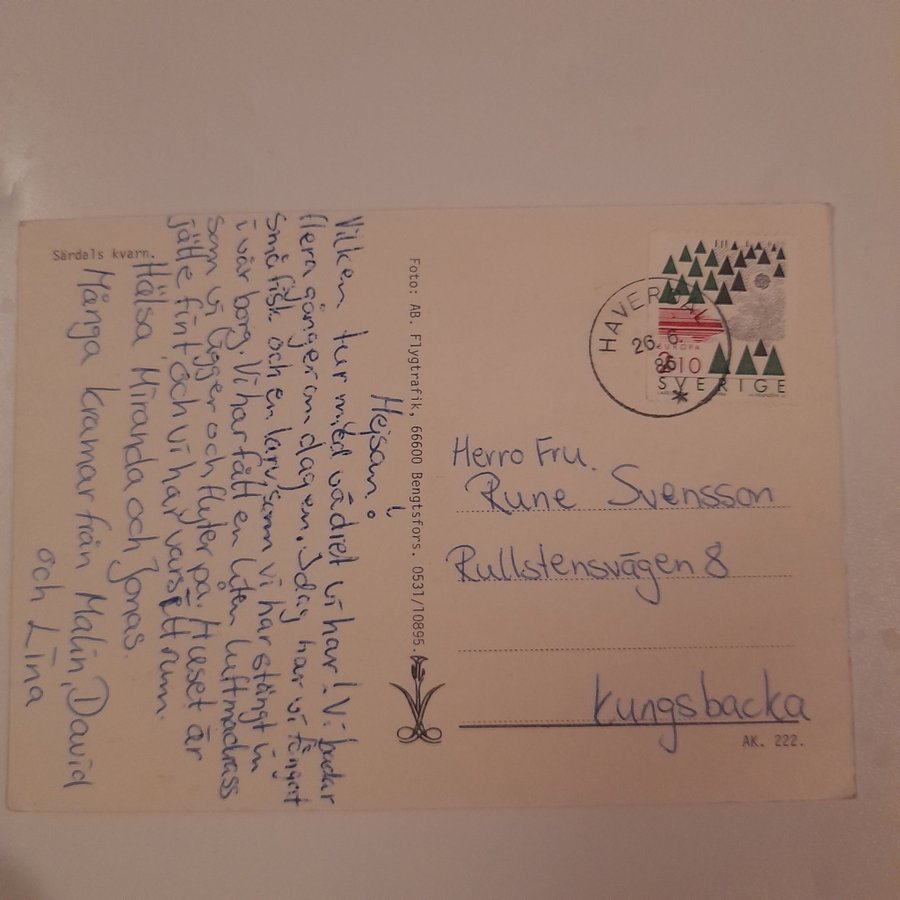 Särdals kvarn.
Hejsan!
Vilken tur med vädret vi har! Vi badar
flera gånger om dagen. Idag har vi fångat
små fisk och en larv, som vi har stängt in
i vår borg. Vi har fått en liten luftmadrass
som vi ligger och flyter på. Huset är
jätte fint och vi har varsitt rum.
Hälsa Miranda och Jonas.
Många kramar från Malin, David
och Lina
Foto: AB. Flygtrafik, 66600 Bengtsfors. 0531/10895.
HAVERDAL
26.6.
86
EUROPA
2.10
SVERIGE
Herro Fru.
Rune Svensson
Rullstensvägen 8
Kungsbacka
AK. 222.